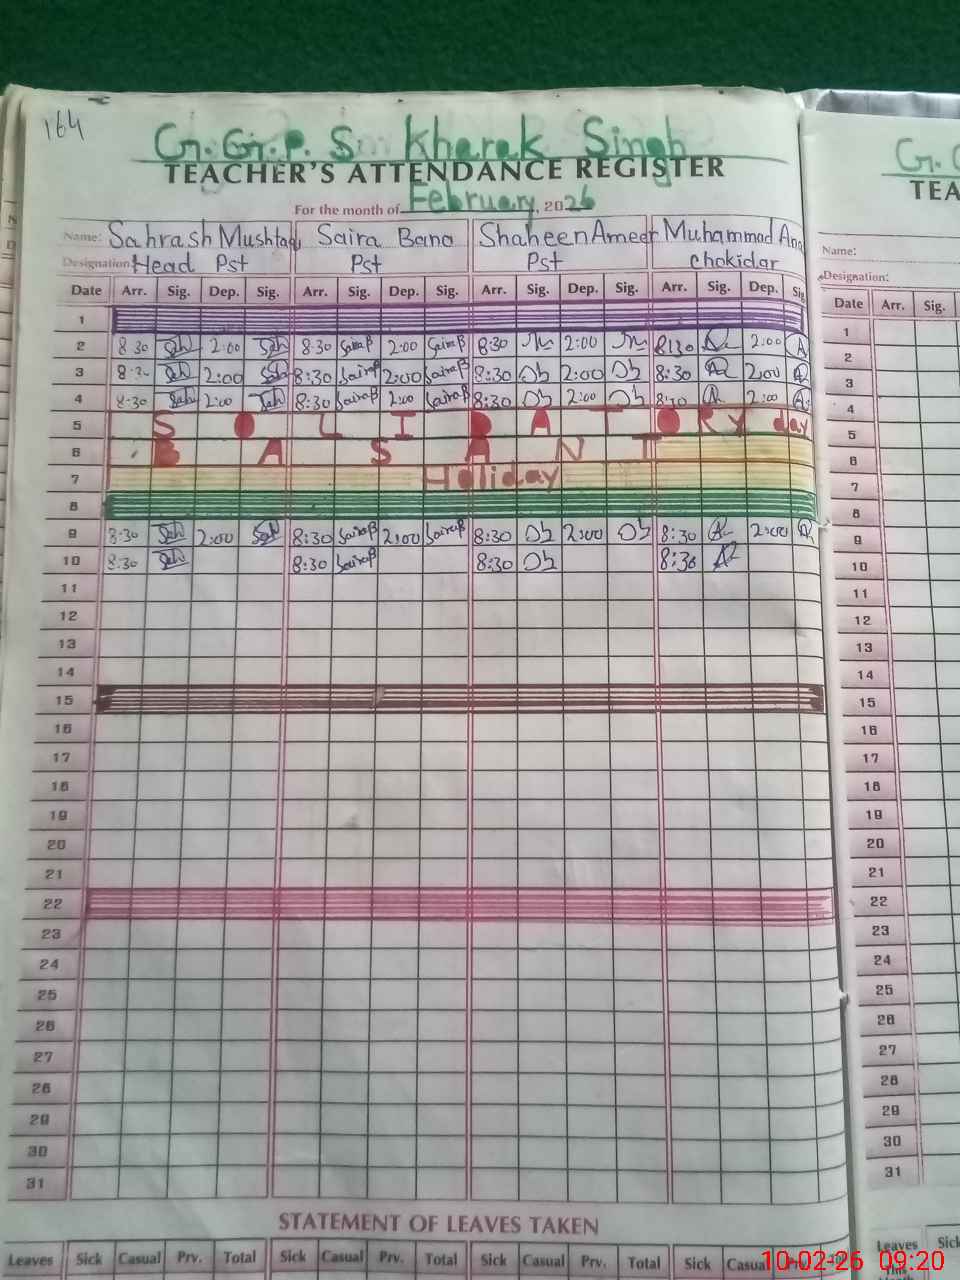 164
G.G.P.S. Kharak Singh
TEACHER'S ATTENDANCE REGISTER
For the month of February, 2026
Name: Sahrash Mushtaq Saira Bano Shaheen Ameer Muhammad
Designation: Head Pst Pst Pst Chokidar
Date Arr. Sig. Dep. Sig. Arr. Sig. Dep. Sig. Arr. Sig. Dep. Sig. Arr. Sig. Dep. Sig.
1
2 8:30 2:00 8:30 2:00 8:30 2:00 8:30 2:00
3 2:00 8:30 2:00 8:30 2:00 8:30 2:00
4 8:30 2:00 8:30 2:00 8:30 2:00 8:30 2:00
5 SOLIDATORY day
6 BASANT
7 Holiday
8
9 8:30 2:00 8:30 2:00 8:30 2:00 8:30 2:00
10 8:30 8:30 8:30 8:30
11
12
13
14
15
16
17
18
19
20
21
22
23
24
25
26
27
28
29
30
31
STATEMENT OF LEAVES TAKEN
Leaves Sick Casual Prv. Total Sick Casual Prv. Total Sick Casual Prv. Total Sick Casual
G.
TEA
Name:
Designation:
Date Arr. Sig.
1
2
3
4
5
6
7
8
9
10
11
12
13
14
15
16
17
18
19
20
21
22
23
24
25
26
27
28
29
30
31
Leaves Sick
10-02-26 09:20